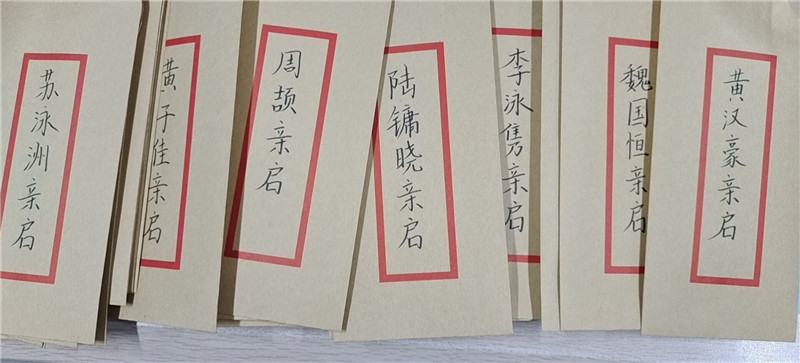 苏泳洲亲启
黄子佳亲启
周颉亲启
陆镛晓亲启
李泳隽亲启
魏国恒亲启
黄汉豪亲启